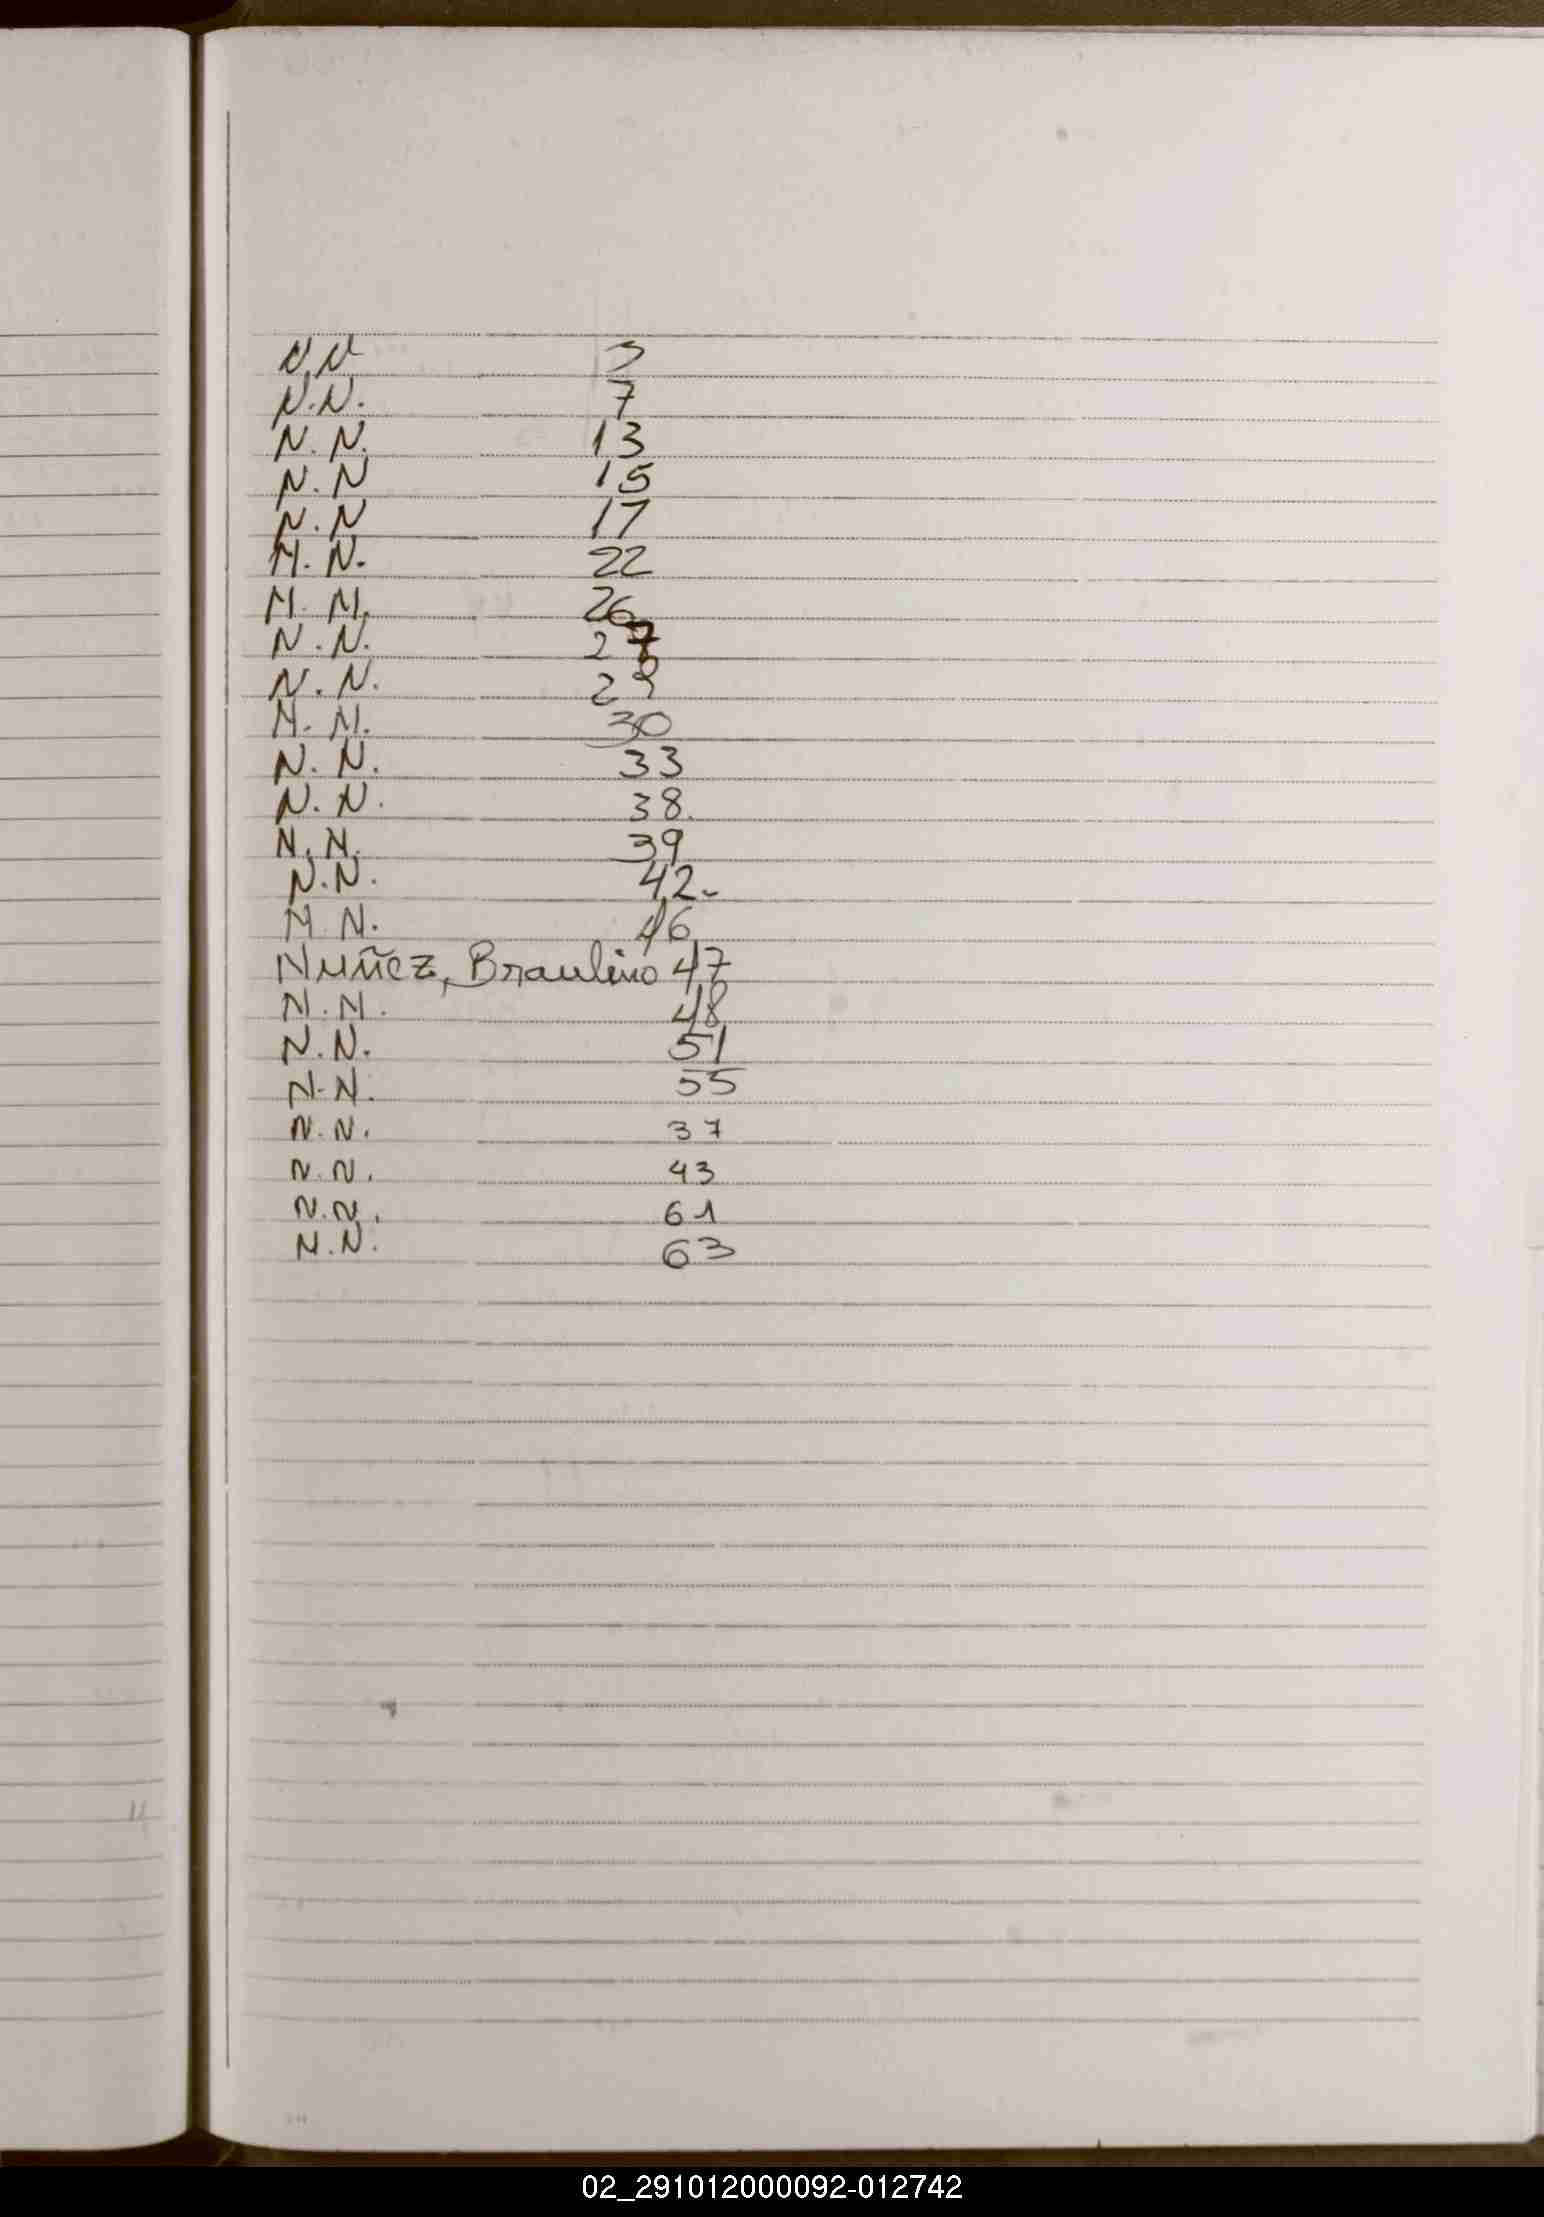 N.N. 3
N.N. 7
N.N. 13
N.N 15
N.N 17
N.N. 22
N.N. 26
N.N. 27
N.N. 29
N.N. 30
N.N. 33
N.N. 38.
N.N. 39
N.N. 42.
N.N. 46
Nuñez, Braulino 47
N.N. 48
N.N. 51
N.N. 55
N.N. 37
N.N. 43
N.N. 61
N.N. 63
02_291012000092-012742